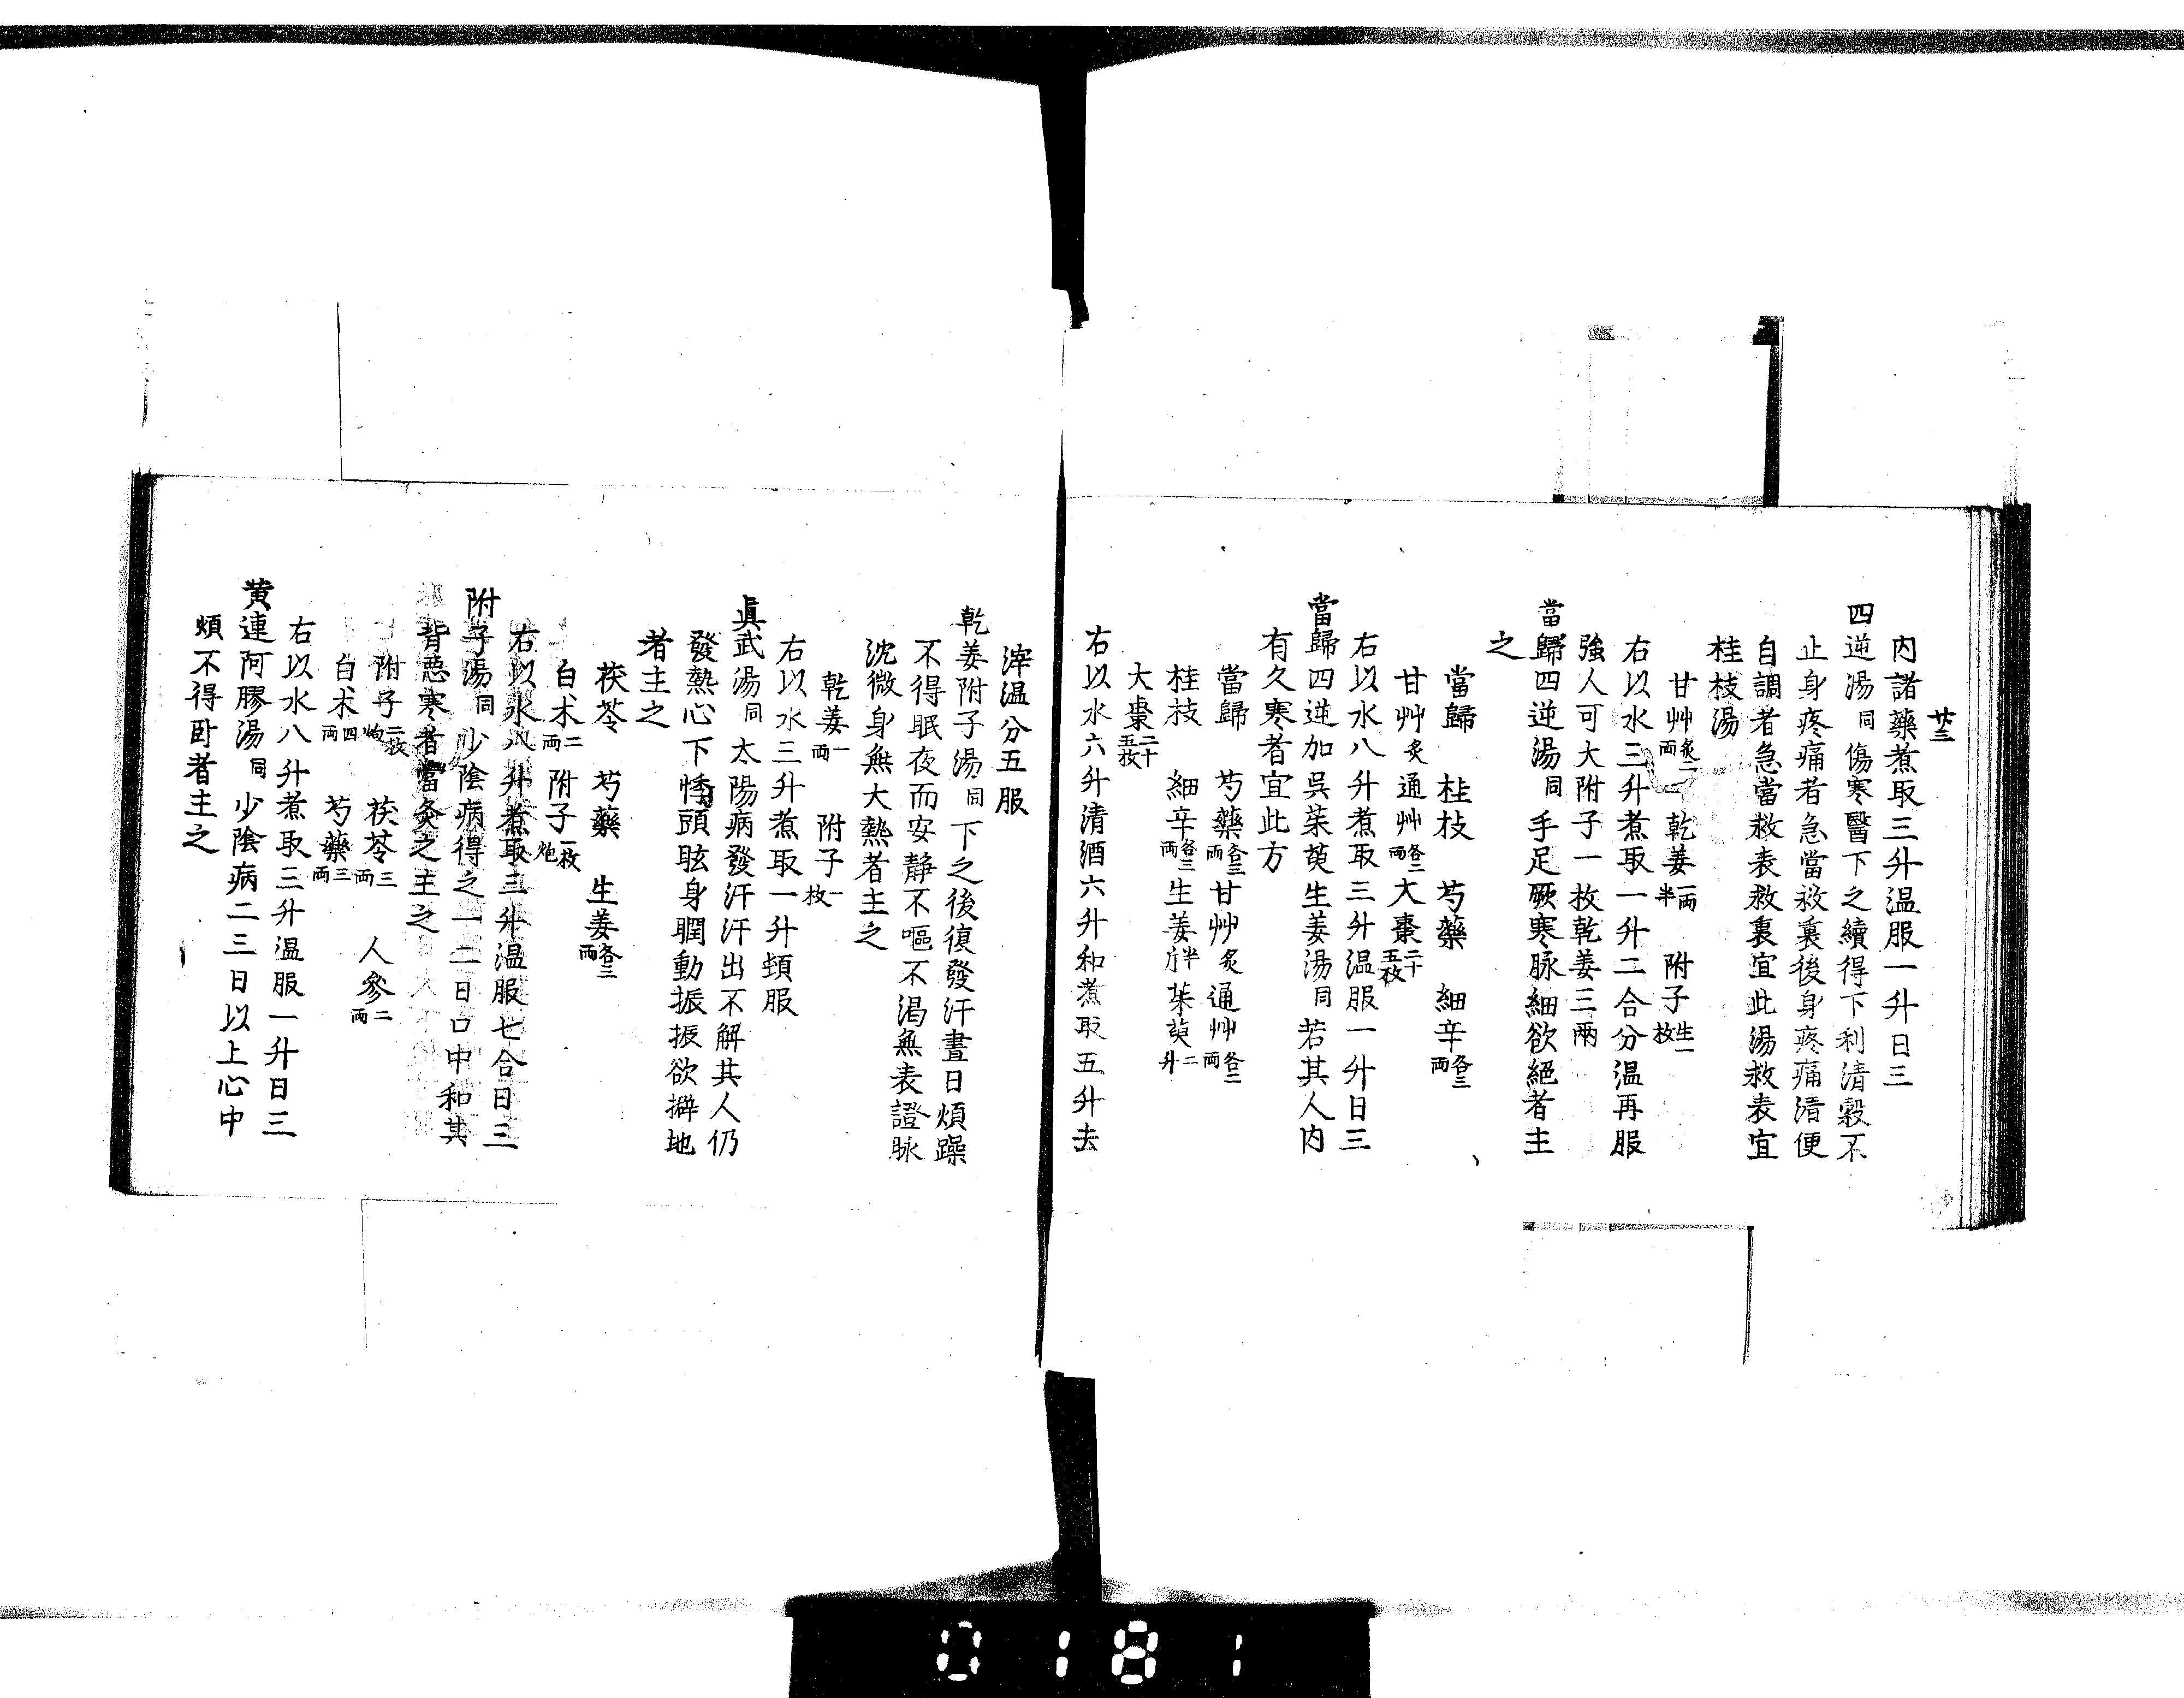 廿三
内諸藥煮取三升温服一升日三
四逆湯同傷寒醫下之續得下利清穀不
止身疼痛者急當救裏後身疼痛清便
自調者急當救表救裏宜此湯救表宜
桂枝湯
甘艸炙二両 乾姜一両半 附子生一枚
右以水三升煮取一升二合分温再服
強人可大附子一枚乾姜三兩
當歸四逆湯同手足厥寒脉細欲絕者主
之
當歸 桂枝 芍藥 細辛各三両
甘艸炙 通艸各二両 大棗二十五枚
右以水八升煮取三升温服一升日三
當歸四逆加呉茱萸生姜湯同若其人内
有久寒者宜此方
當歸 芍藥各三両 甘艸炙 通艸各二両
桂枝 細辛各三両 生姜半斤 茱萸二升
大棗二十五枚
右以水六升清酒六升和煮取五升去
滓温分五服
乾姜附子湯同下之後復發汗晝日煩躁
不得眠夜而安静不嘔不渇無表證脉
沈微身無大熱者主之
乾姜一両 附子一枚
右以水三升煮取一升頓服
眞武湯同太陽病發汗汗出不解其人仍
發熱心下悸頭眩身瞤動振振欲擗地
者主之
茯苓 芍藥 生姜各三両
白朮二両 附子一枚炮
右以水八升煮取三升温服七合日三
附子湯同少陰病得之一二日口中和其
背惡寒者當灸之主之
附子二枚炮 茯苓三両 人參二両
白朮四両 芍藥三両
右以水八升煮取三升温服一升日三
黄連阿膠湯同少陰病二三日以上心中
煩不得卧者主之
0181